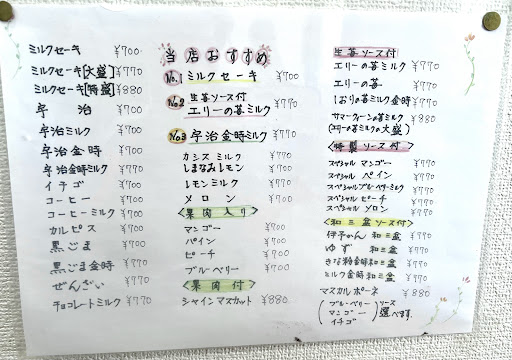 ミルクセーキ ¥700
ミルクセーキ[大盛] ¥770
ミルクセーキ[特盛] ¥880
宇治 ¥700
宇治ミルク ¥770
宇治金時 ¥770
宇治金時ミルク ¥770
イチゴ ¥700
コーヒー ¥700
コーヒーミルク ¥770
カルピス ¥700
黒ごま ¥700
黒ごま金時 ¥770
ぜんざい ¥770
チョコレートミルク ¥770
当店おすすめ
No.1 ミルクセーキ ¥700
No.2 生苺ソース付
エリーの苺ミルク ¥770
No.3 宇治金時ミルク ¥770
カシスミルク ¥770
しまなみレモン ¥770
レモンミルク ¥770
メロン ¥700
<果肉入り>
マンゴー ¥700
パイン ¥700
ピーチ ¥700
ブルーベリー ¥700
<果肉付>
シャインマスカット ¥880
生苺ソース付
エリーの苺ミルク ¥770
エリーの苺 ¥770
しおりの苺ミルク金時 ¥770
サマークイーンの苺ミルク ¥880
(エリーの苺ミルクの大盛)
<特製ソース付>
スペシャル マンゴー ¥770
スペシャル パイン ¥770
スペシャルブルーベリーミルク ¥770
スペシャル ピーチ ¥770
スペシャル メロン ¥770
<和三盆ソース付>
伊予かん和三盆 ¥770
ゆず 和三盆 ¥770
きな粉金時和三盆 ¥770
ミルク金時和三盆 ¥770
マスカルポーネ ¥880
(ブルーベリー マンゴー イチゴ)ソース選べます